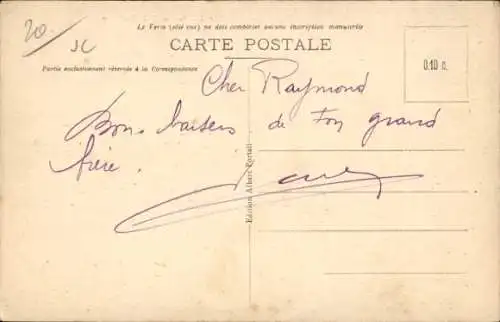 20
JC
Le Verso (côté vue) ne doit comporter aucune inscription manuscrite
CARTE POSTALE
Partie exclusivement réservée à la Correspondance
0.10 c.
Cher Raymond
Bons baisers de Ton grand
frère.
Edition Albert Portail